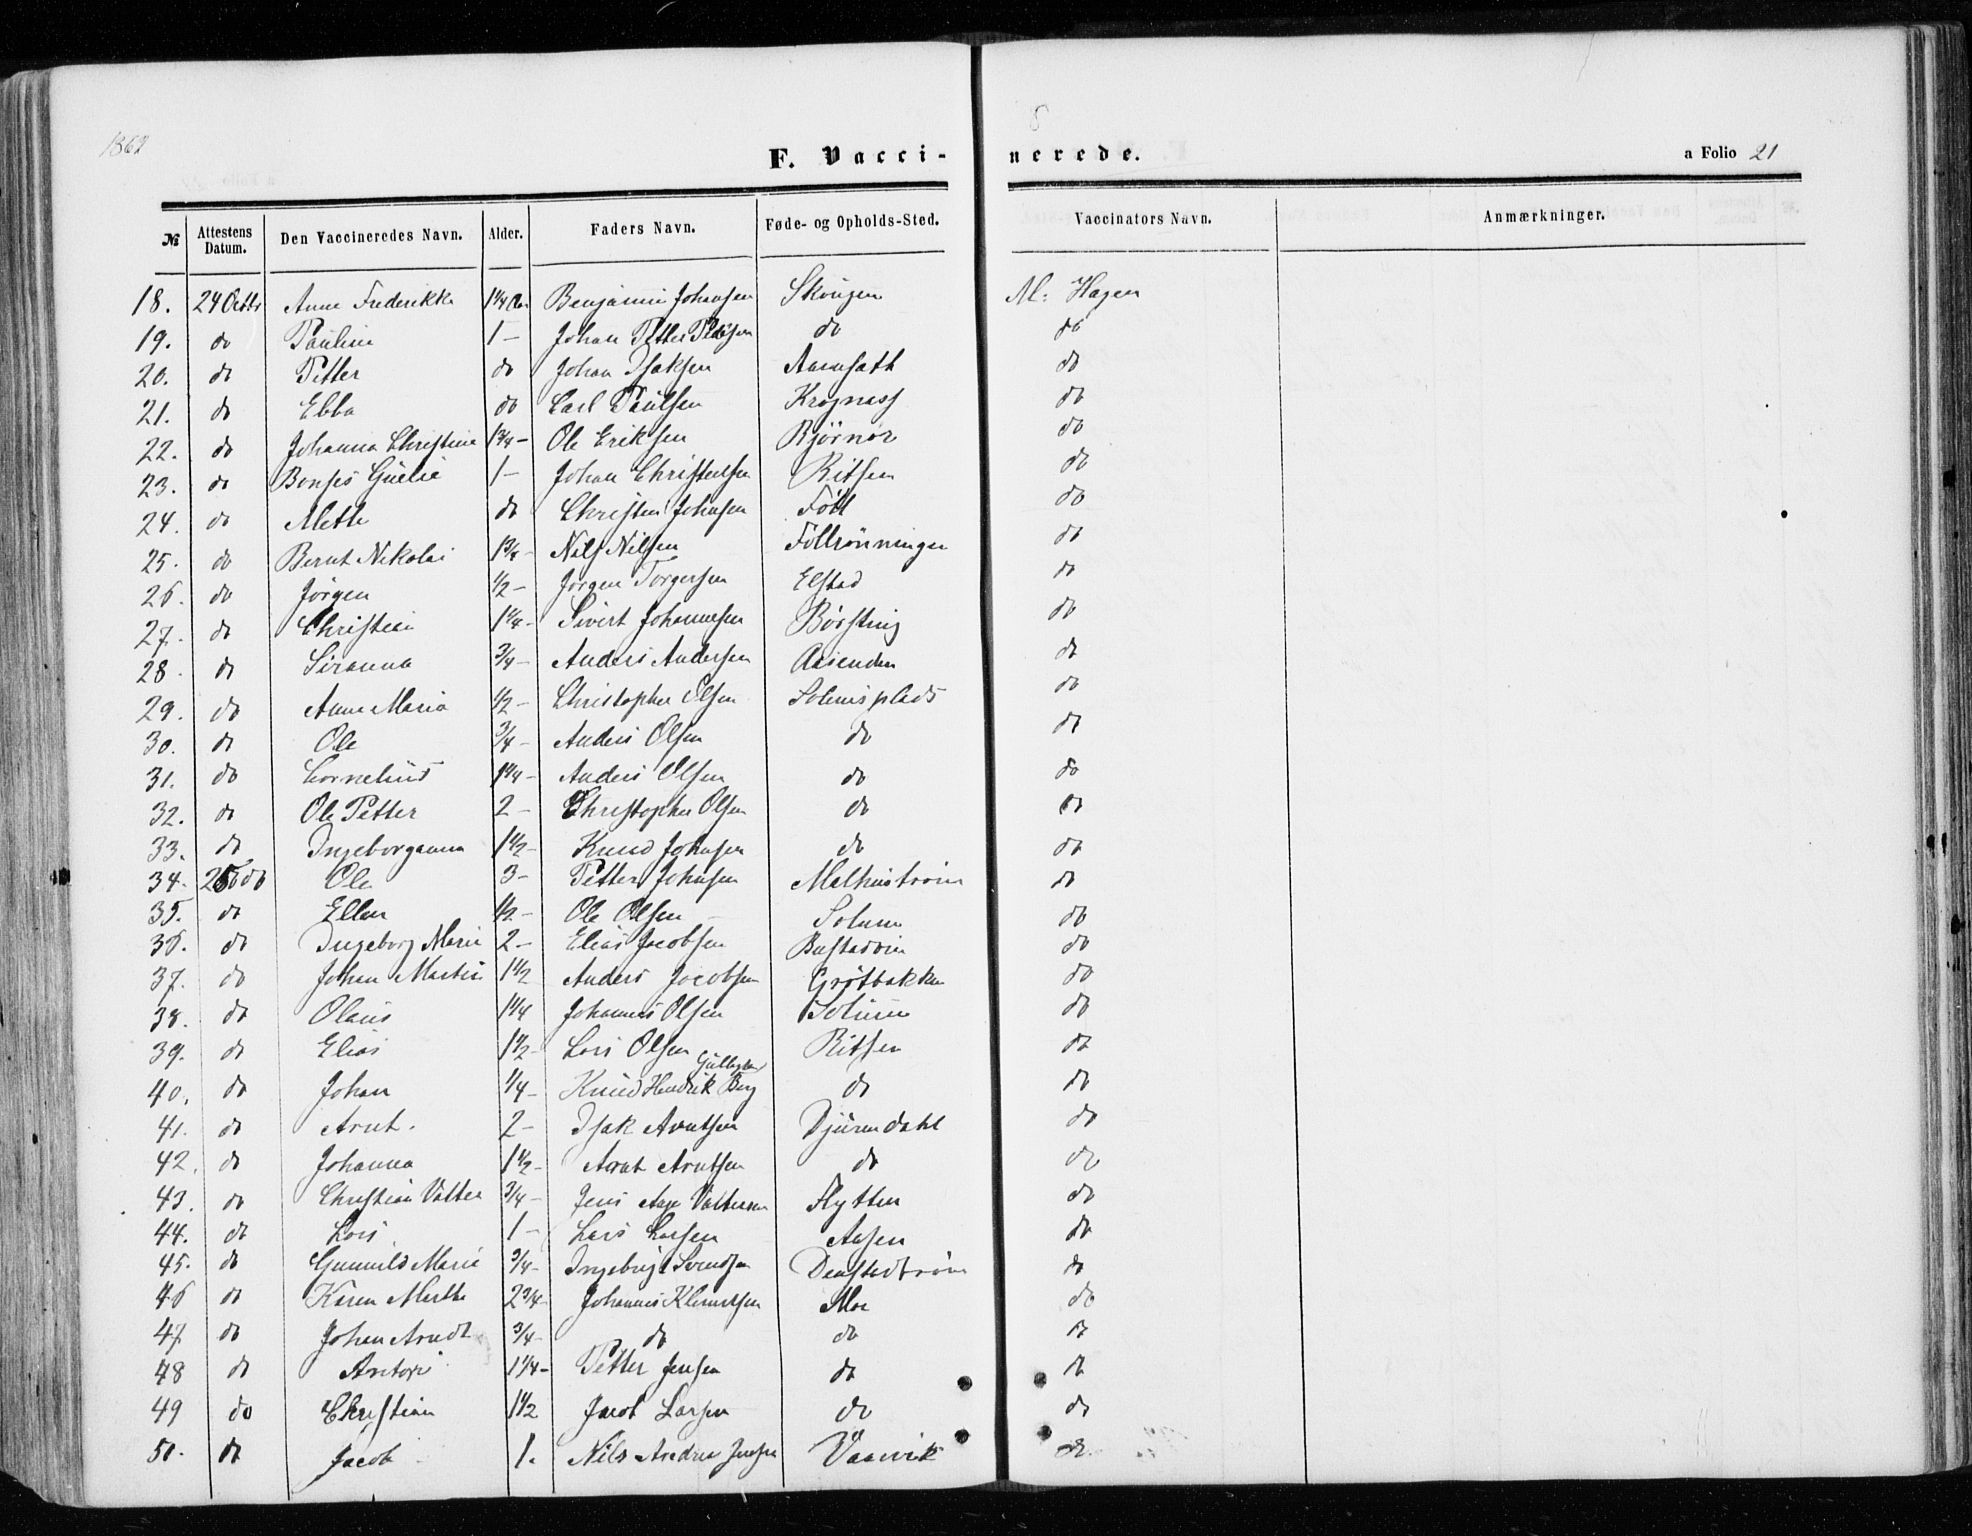 1862
F. Vaccinerede.
a Folio 21
№ Attestens Datum. Den Vaccineredes Navn. Alder. Faders Navn. Føde- og Opholds-Sted. Vaccinators Navn. Anmærkninger.
18. 24 Octbr Anne Frederikke 1 1/4 Aar Benjamin Johansen Skougen M: Hagen
19. do Pauline 1 - Johan Petter Pedersen do do
20. do Petter do Johan Isaksen do
21. do Ebba do Carl Paulsen do
22. do Johanna Christine 1 3/4 - Ole Eriksen Bjørnør do
23. do 1 - Johan Christensen Ritsen do
24. do Mette do Christen Johnsen do
25. do Bernt Nikolai 1 3/4 - Nils Nilsen do
26. do Jørgen 1/2 - Jørgen Torgersen Elstad do
27. do Christian 1 1/4 - Sivert Johannesen Børsting do
28. do Siranna 3/4 - Anders Andersen do
29. do Anne Maria 1/2 - Christopher Olsen Solemsplads do
30. do Ole 3/4 - Anders Olsen do do
31. do Cornelius 1 1/4 - Anders Olsen do do
32. do Ole Petter 2 - Christopher Olsen do do
33. do Ingeborganna 1 1/2 - Knud Johnsen do do
34. 25 do Ole 3 - Petter Johnsen do
35. do Ellen 1/2 - Ole Olsen Solum do
36. do Ingeborg Marie 2 - Elias Jacobsen do
37. do Johan Martin 1 1/2 Anders Jacobsen Grøtbakken do
38. do Olaus 1 1/4 Johannes Olsen Solum do
39. do Elias 1 1/2 - Lars Olsen Ritsen do
40. do Johan 1/4 - Knud Hendrik Berg do do
41. do Arnt. 2 - Isak Arntsen Djurendahl do
42. do Johanna 1 1/2 - Arnt Arntsen do do
43. do Christian Valter 3/4 - Jens Aage Valtersen Flytten do
44. do Lars 1 - Lars Larsen Aasen do
45. do Gunnild Marie 3/4 - Ingebrigt Svendsen do
46 do Karen Merthe 2 3/4 - Johannes Klemetsen Moe do
47. do Johan Arndt 3/4 - do do do
48 do Anton 1 1/4 - Petter Jensen do do
49 do Christian 1 1/2 Jacob Larsen do do
50. do Jacob 1. Nils Andrea Jensen Vaavik do